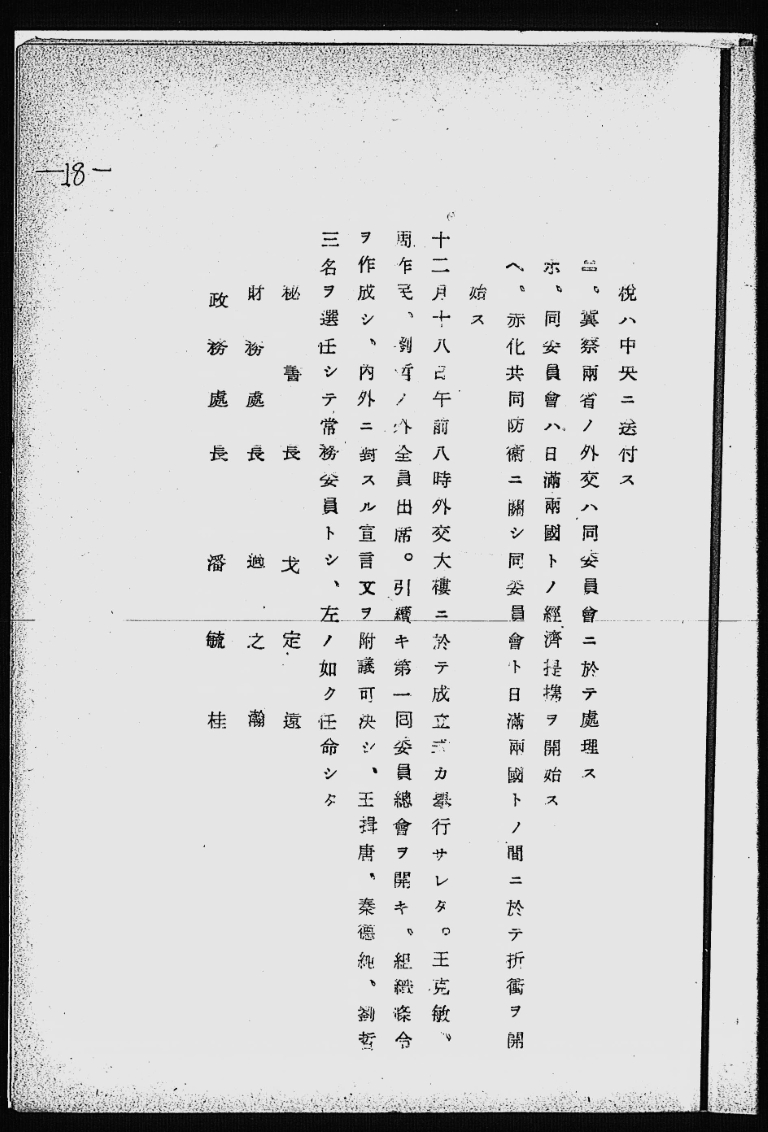 —18—
稅ハ中央ニ送付ス
ニ。冀察兩省ノ外交ハ同委員會ニ於テ處理ス
ホ。同委員會ハ日滿兩國トノ經濟提携ヲ開始ス
ヘ。赤化共同防衞ニ關シ同委員會ト日滿兩國トノ間ニ於テ折衝ヲ開
始ス
十二月十八日午前八時外交大樓ニ於テ成立式カ擧行サレタ。王克敏、
周作民、劉哲ノ外全員出席。引續キ第一回委員總會ヲ開キ、組織條令
ヲ作成シ、內外ニ對スル宣言文ヲ附議可決シ、王揖唐、秦德純、劉哲
三名ヲ選任シテ常務委員トシ、左ノ如ク任命シタ
秘書長　戈定遠
財務處長　過之瀚
政務處長　潘毓桂